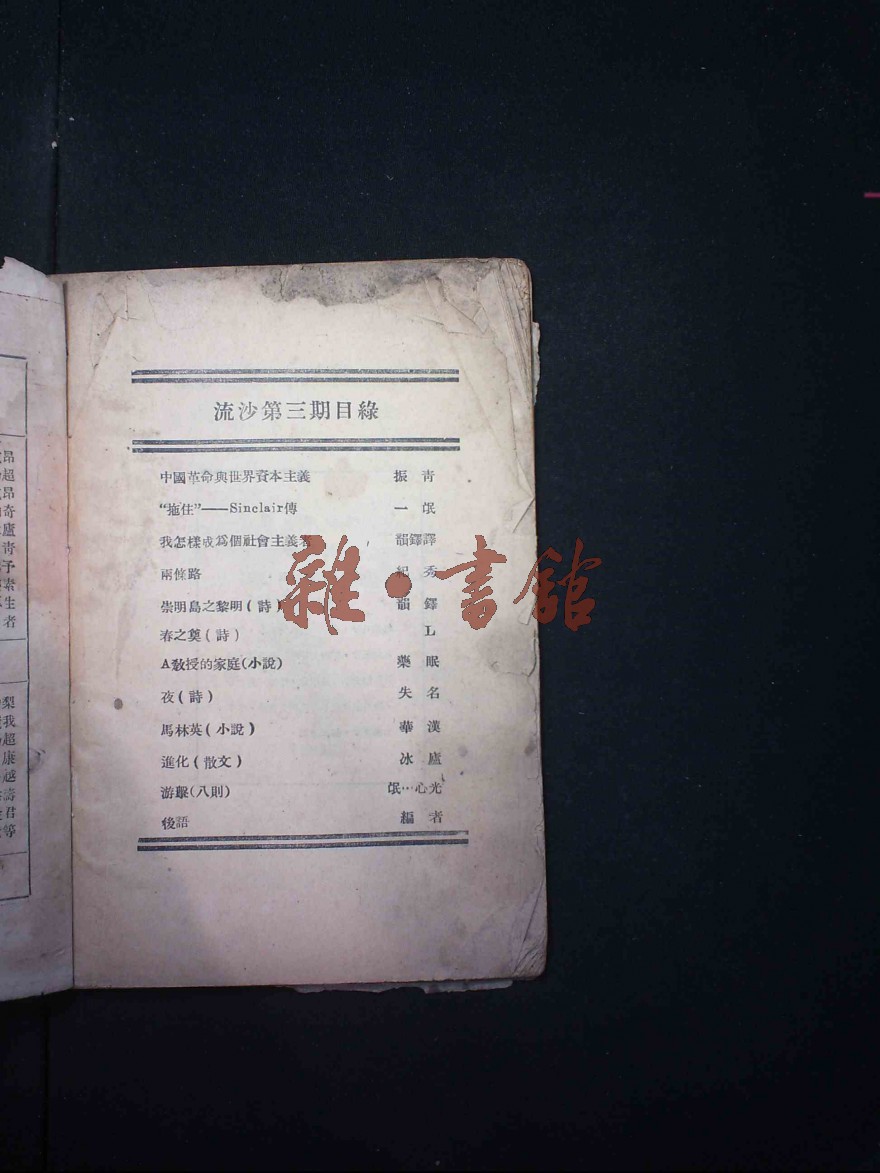 流沙第三期目綠
中國革命與世界資本主義 振青
“拖住”——Sinclair傳 一氓
我怎樣成爲個社會主義者 韻鐸譯
兩條路 紀秀
崇明島之黎明(詩) 韻鐸
春之奠(詩) L
A教授的家庭(小說) 藥眠
夜(詩) 失名
馬林英(小說) 華漢
進化(散文) 冰廬
游擊(八則) 氓…心光
後語 編者
雜·書館
昂
超
昂
奇
廬
靑
予
素
生
者
梨
我
超
康
越
濤
君
等